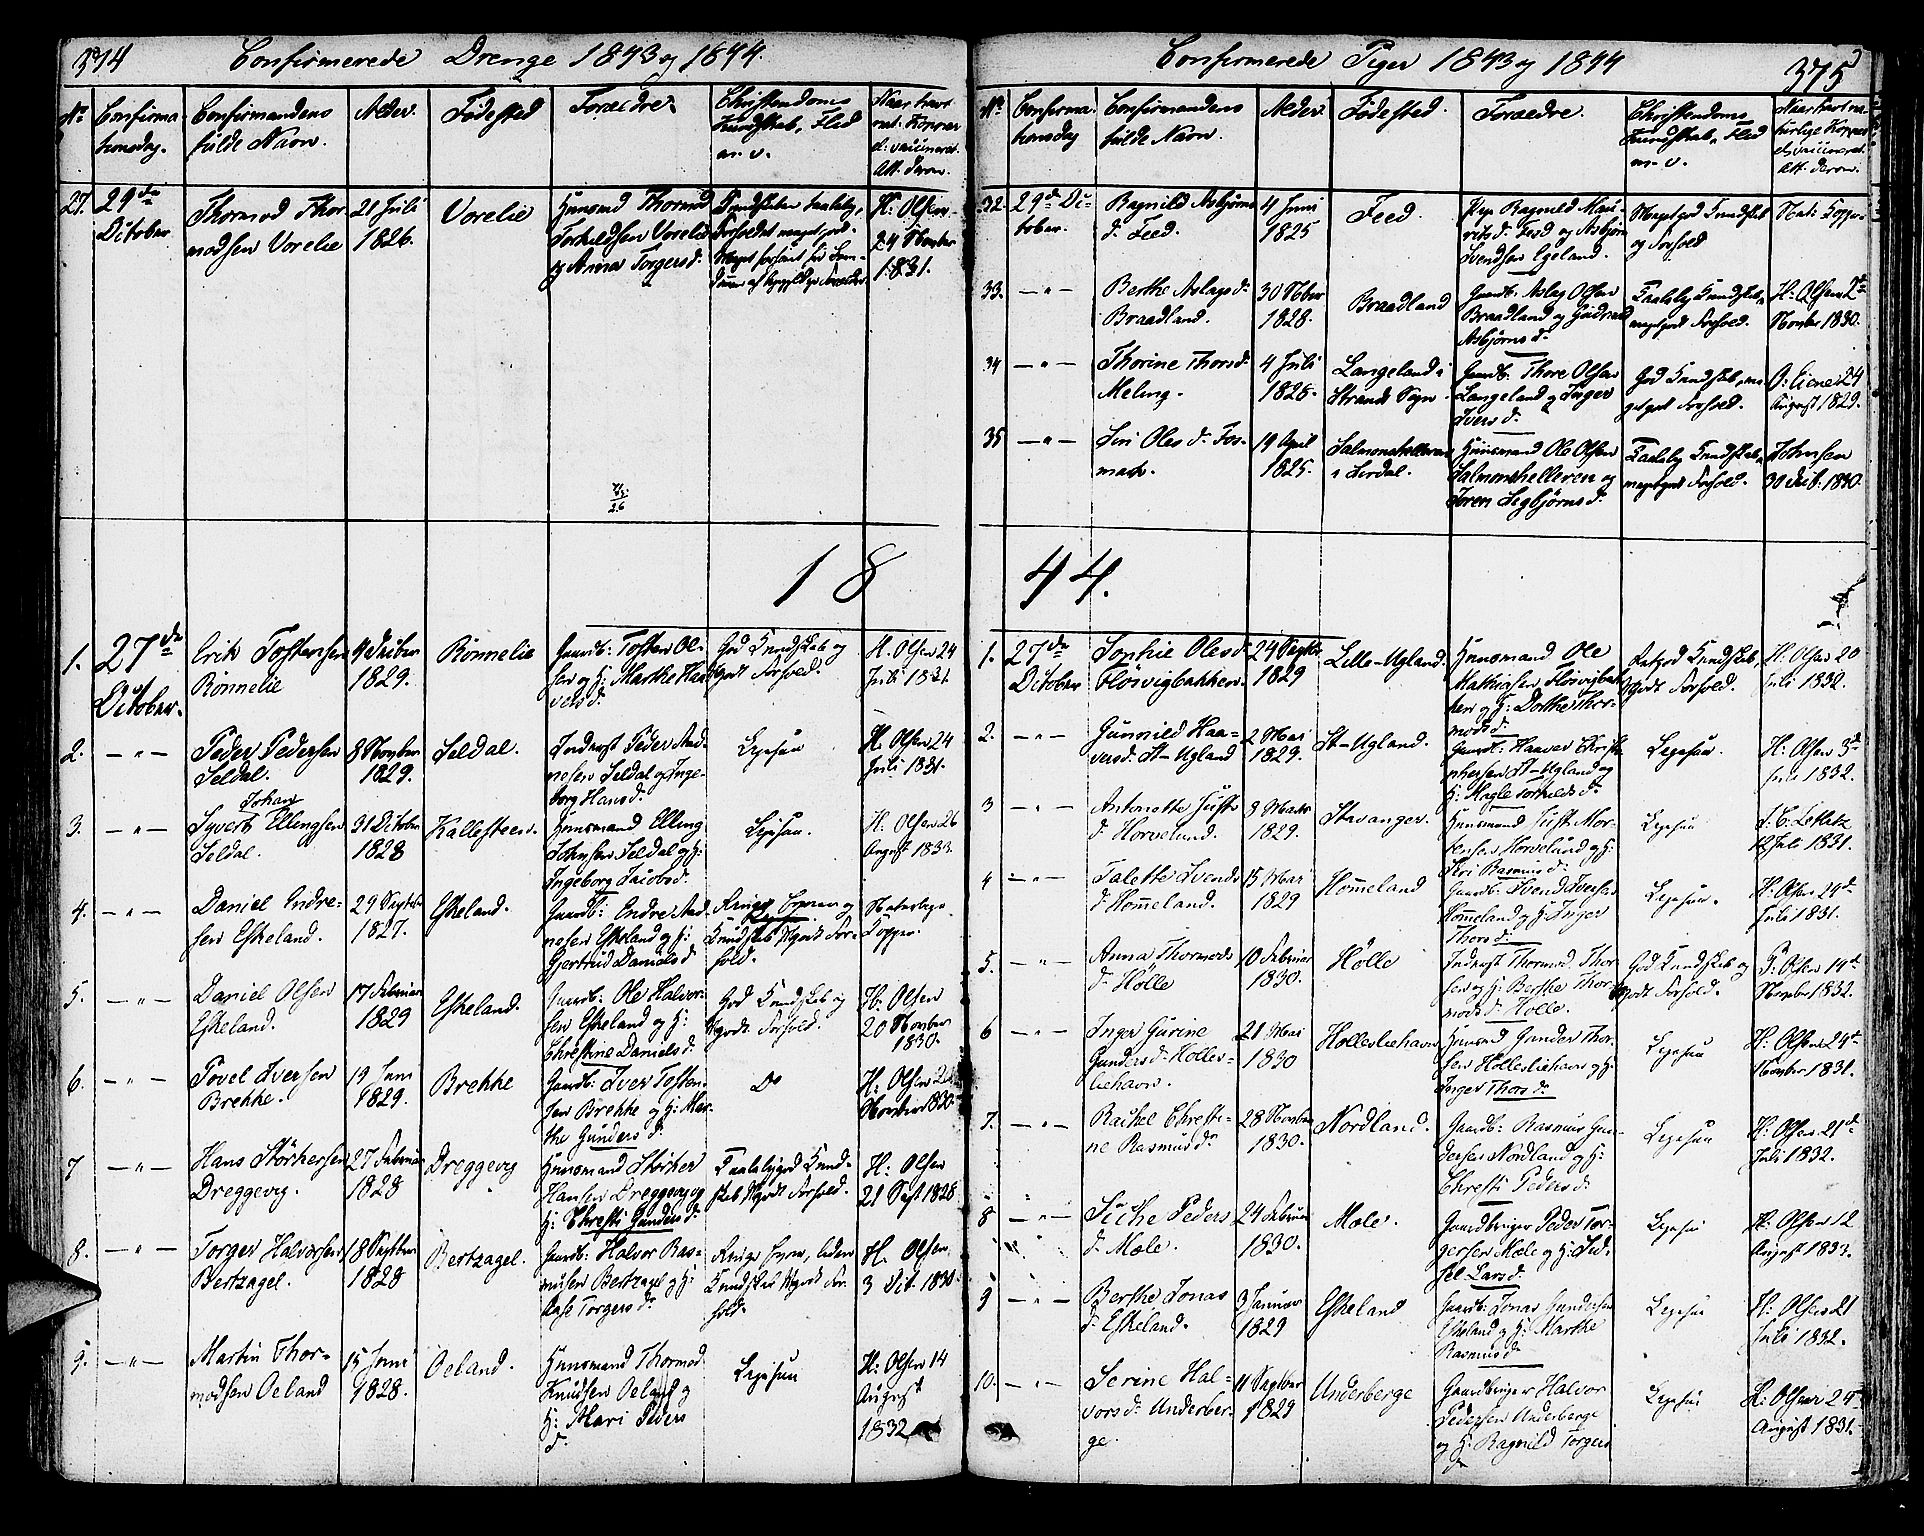 374
Confirmerede Drenge 1843 og 1844.
No
Confirma-
tionsdag.
Confirmandens
fulde Navn.
Alder.
Fødested
Forældre.
Christendoms
Kundskab, Flid
m. v.
Naar havt
nat: Kopper
el: vaccineret.
Att. derom.
27.
29de
October
Thormod Thor-
modsen Vorelie
21 Juli
1826.
Vorelie
Huusmd Thormod
Torkildsen Vorelie
og Anna Torgersd.
H: Olsen
24 Novber
1831.
18
1.
27de
October.
Erik Tostensen
Rönnelie
4 Decber
1829.
Rönnelie
Gaardb: Tosten Ol-
sen og H: Marthe Hal-
versd.
God Kundskab og
godt Forhold.
H. Olsen 24
Juli 1831.
2.
— " —
Peder Pedersen
Seldal.
8 Novber
1829.
Seldal.
Inderst Peder Aad-
nesen Seldal og Inge-
borg Hansd.
Ligesaa
H. Olsen 24
Juli 1831.
3.
— " —
Johan
Syvert Ellingsen
Seldal.
31 October
1828
Kallesteen.
Huusmand Elling
Johnsen Seldal og H:
Ingeborg Jacobsd.
Ligesaa.
H: Olsen 26
August 1833.
4.
— " —
Daniel Endre-
sen Eskeland.
29 Septbr
1827.
Eskeland.
Gaardb: Endre Aad-
nesen Eskeland og H:
Gjertrud Danielsd.
Kundskab og godt For-
hold.
Naturlige
Kopper.
5.
— " —
Daniel Olsen
Eskeland.
17 Februar
1829
Eskeland.
Gaardb: Ole Halvor-
sen Eskeland og H:
Christine Danielsd.
God Kundskab og
godt Forhold.
H: Olsen
20 Novber
1830.
6.
— " —
Povel Iversen
Brekke.
19 Juni
1829.
Brekke
Gaardb: Iver Tosten-
sen Brekke og H: Mar-
the Gundersd.
Do
H: Olsen 24
Novber 1830.
7
— " —
Hans Störkersen
Dreggevig.
27 Februar
1828
Dreggevig
Huusmand Störker
Hansen Dreggevig og
H: Christi Gundersd.
Taalelig god Kund-
skab og godt Forhold.
H: Olsen
21 Sept 1828
8.
— " —
Torger Halvorsen
Bertzagel.
18 Septber
1828
Bertzagel.
Gaardb: Halvor Ras-
musen Bertzagel og H:
Torgersd.
Kundskab og godt For-
hold.
H. Olsen
3 Oct. 1830
9.
— " —
Martin Thor-
modsen Oeland
15 Juni
1828.
Oeland.
Huusmand Thormod
Knudsen Oeland og
H: Mari Peders
d.
Ligesaa
H: Olsen 14
August
1832
Confirmerede Piger 1843 og 1844
375
No
Confirma-
tionsdag
Confirmandens
fulde Navn.
Alder.
Fødested.
Forældre.
Christendoms
Kundskab, Flid
m. v.
Naar havt na-
turlige Kopper
el. vaccineret.
Att. derom.
32
29de Oc-
tober.
Ragnild Asbjörns
d. Feed.
4 Juni
1825
Feed.
Pige Ragnild
Feed og Asbjörn
Svendsen Egeland.
Meget god Kundskab
og Forhold
Nat: Kopper
33.
— " —
Berthe Aslags d.
Braadland.
30 Novber
1828.
Braadland
Gaardb: Aslag Olsen
Braadland og Gudrud
Asbjörnsd.
Taalelig Kundskab,
meget godt Forhold.
H: Olsen 2de
Novber 1830.
34
— " —
Thorine Thorsd.
Meling.
4 Juli
1828.
Langeland i
Strands Sogn.
Gaardb: Thore Olsen
Langeland og Inger
Iversd.
God Kundskab, me-
get godt Forhold.
24
August 1829.
35
— " —
Siri Oles d. Fos-
mark.
19 April
1825.
Salmonshelleren
i Sirdal.
Huusmand Ole Olsen
Salmonshelleren og
Soren Sigbjörnsd.
Taalelig Kundskab,
meget godt Forhold.
Johnsen
30 Decb. 1830.
44.
1.
27de
October
Sophie Olesd.
Flöivigbakken.
24 Septbr
1829
Lille-Ugland.
Huusmand Ole
Mathiasen Flöivigbak-
ken og H: Dorthe Thor-
modsd.
Ret god Kundskab,
godt Forhold.
H: Olsen 20
Juli 1832.
2.
— " —
Gunnild Haa-
versd. St-Ugland
2 Mai
1829.
St-Ugland.
Gaardb: Haaver Christo-
phersen St-Ugland og
H: Torkildsd.
Ligesaa.
H: Olsen 3de
Juli 1832.
3
— " —
Antonette Justs
d. Horvelund.
8 Marts
1829.
Stavanger.
Huusmand Just Mor-
tensen Horvelund og H:
Siri Rasmusd.
Ligesaa
12 Juli 1831.
4
— " —
Talette Svends
d. Hommeland.
15 Mai
1829
Hommeland
Gaardb: Svend Iversen
Hommeland og H: Inger
Thorsd.
Ligesaa.
H: Olsen 24de
Juli 1831.
5.
— " —
Anna Thormods
d. Hölle
10 Februar
1830.
Hölle
Inderst Thormod Thor-
sen og H: Berthe Thor-
modsd. Hölle.
God Kundskab og
godt Forhold.
P: Olsen 19de
Novber 1832.
6
— " —
Inger Gurine
Gundersd. Hölles-
liehavn.
21 Mai
1830
Höllesliehavn
Huusmd Gunder Thor-
sen Höllesliehavn og H:
Inger Thorsd.
Ligesaa
H: Olsen 24de
Novber 1831.
7.
— " —
Rachel Christi-
ne Rasmusd.
28 Novber
1830.
Nordland.
Gaardb: Rasmus Gun-
dersen Nordland og H:
Christi Pedersd.
Ligesaa
H: Olsen 21de
Juli 1832.
8
— " —
Siche Peders
d. Mæle.
24 Februar
1830.
Mæle.
Gaardbruger Peder Tor-
gersen Mæle og H: Sid-
sel Larsd.
Ligesaa
H: Olsen 12
August 1833.
9
— " —
Berthe Jonas
d. Eskeland.
3 Januar
1829
Eskeland
Gaardb: Jonas Gundersen
Eskeland og H: Marthe
Rasmusd.
Ligesaa
H: Olsen 21
Juli 1832.
10.
— " —
Serine Hal-
vorsd. Underber-
ge.
11 Septber
1829
Underberge
Gaardbruger Halvor
Pedersen Underberge
og H: Ragnild Torgers
d.
Ligesaa
H. Olsen 24de
August 1831.